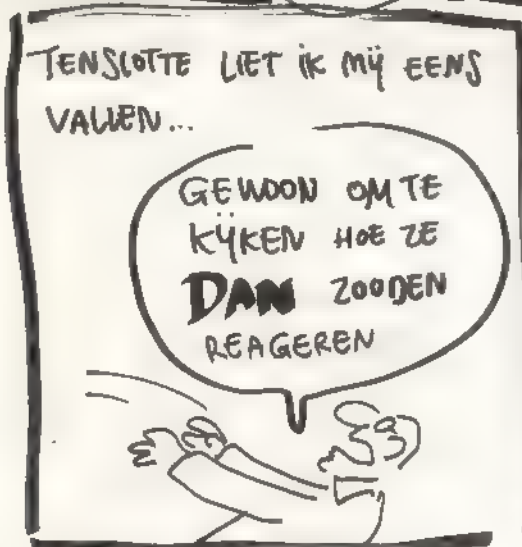 TENSLOTTE LIET IK MIJ EENS
VALLEN...
GEWOON OM TE
KIJKEN HOE ZE
DAN ZOODEN
REAGEREN